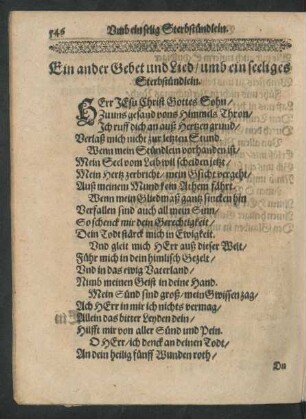 546 Vmb ein selig Sterbstündlein.
Ein ander Gebet und Lied / umb ein seeliges
Sterbstündlein.
HErr JEsu Christ Gottes Sohn /
Zu uns gesand vons Himmels Thron /
Ich ruff dich an auß Hertzen grund /
Verlaß mich nicht zur letzten Stund.
Wenn mein Stündlein vorhanden ist /
Mein Seel vom Leib wil scheiden jetzt /
Mein Hertz zerbricht / mein Gsicht vergeht /
Auß meinem Mund kein Athem fährt.
Wenn mein Gliedmaß gantz sincken hin
Verfallen sind auch all mein Sinn /
So schenck mir dein Gerechtigkeit /
Dein Todt stärck mich in Ewigkeit.
Vnd gleit mich HErr auß dieser Welt /
Führ mich in dein himlisch Gezelt /
Vnd in das ewig Vaterland /
Nimb meinen Geist in deine Hand.
Mein Sünd sind groß / mein Gwissen zag /
Ach HErr in mir ich nichts vermag /
Allein das bitter Leyden dein /
Hilfft mir von aller Sünd und Pein.
O HErr / ich denck an deinen Todt /
An dein heilig fünff Wunden roth /
Du